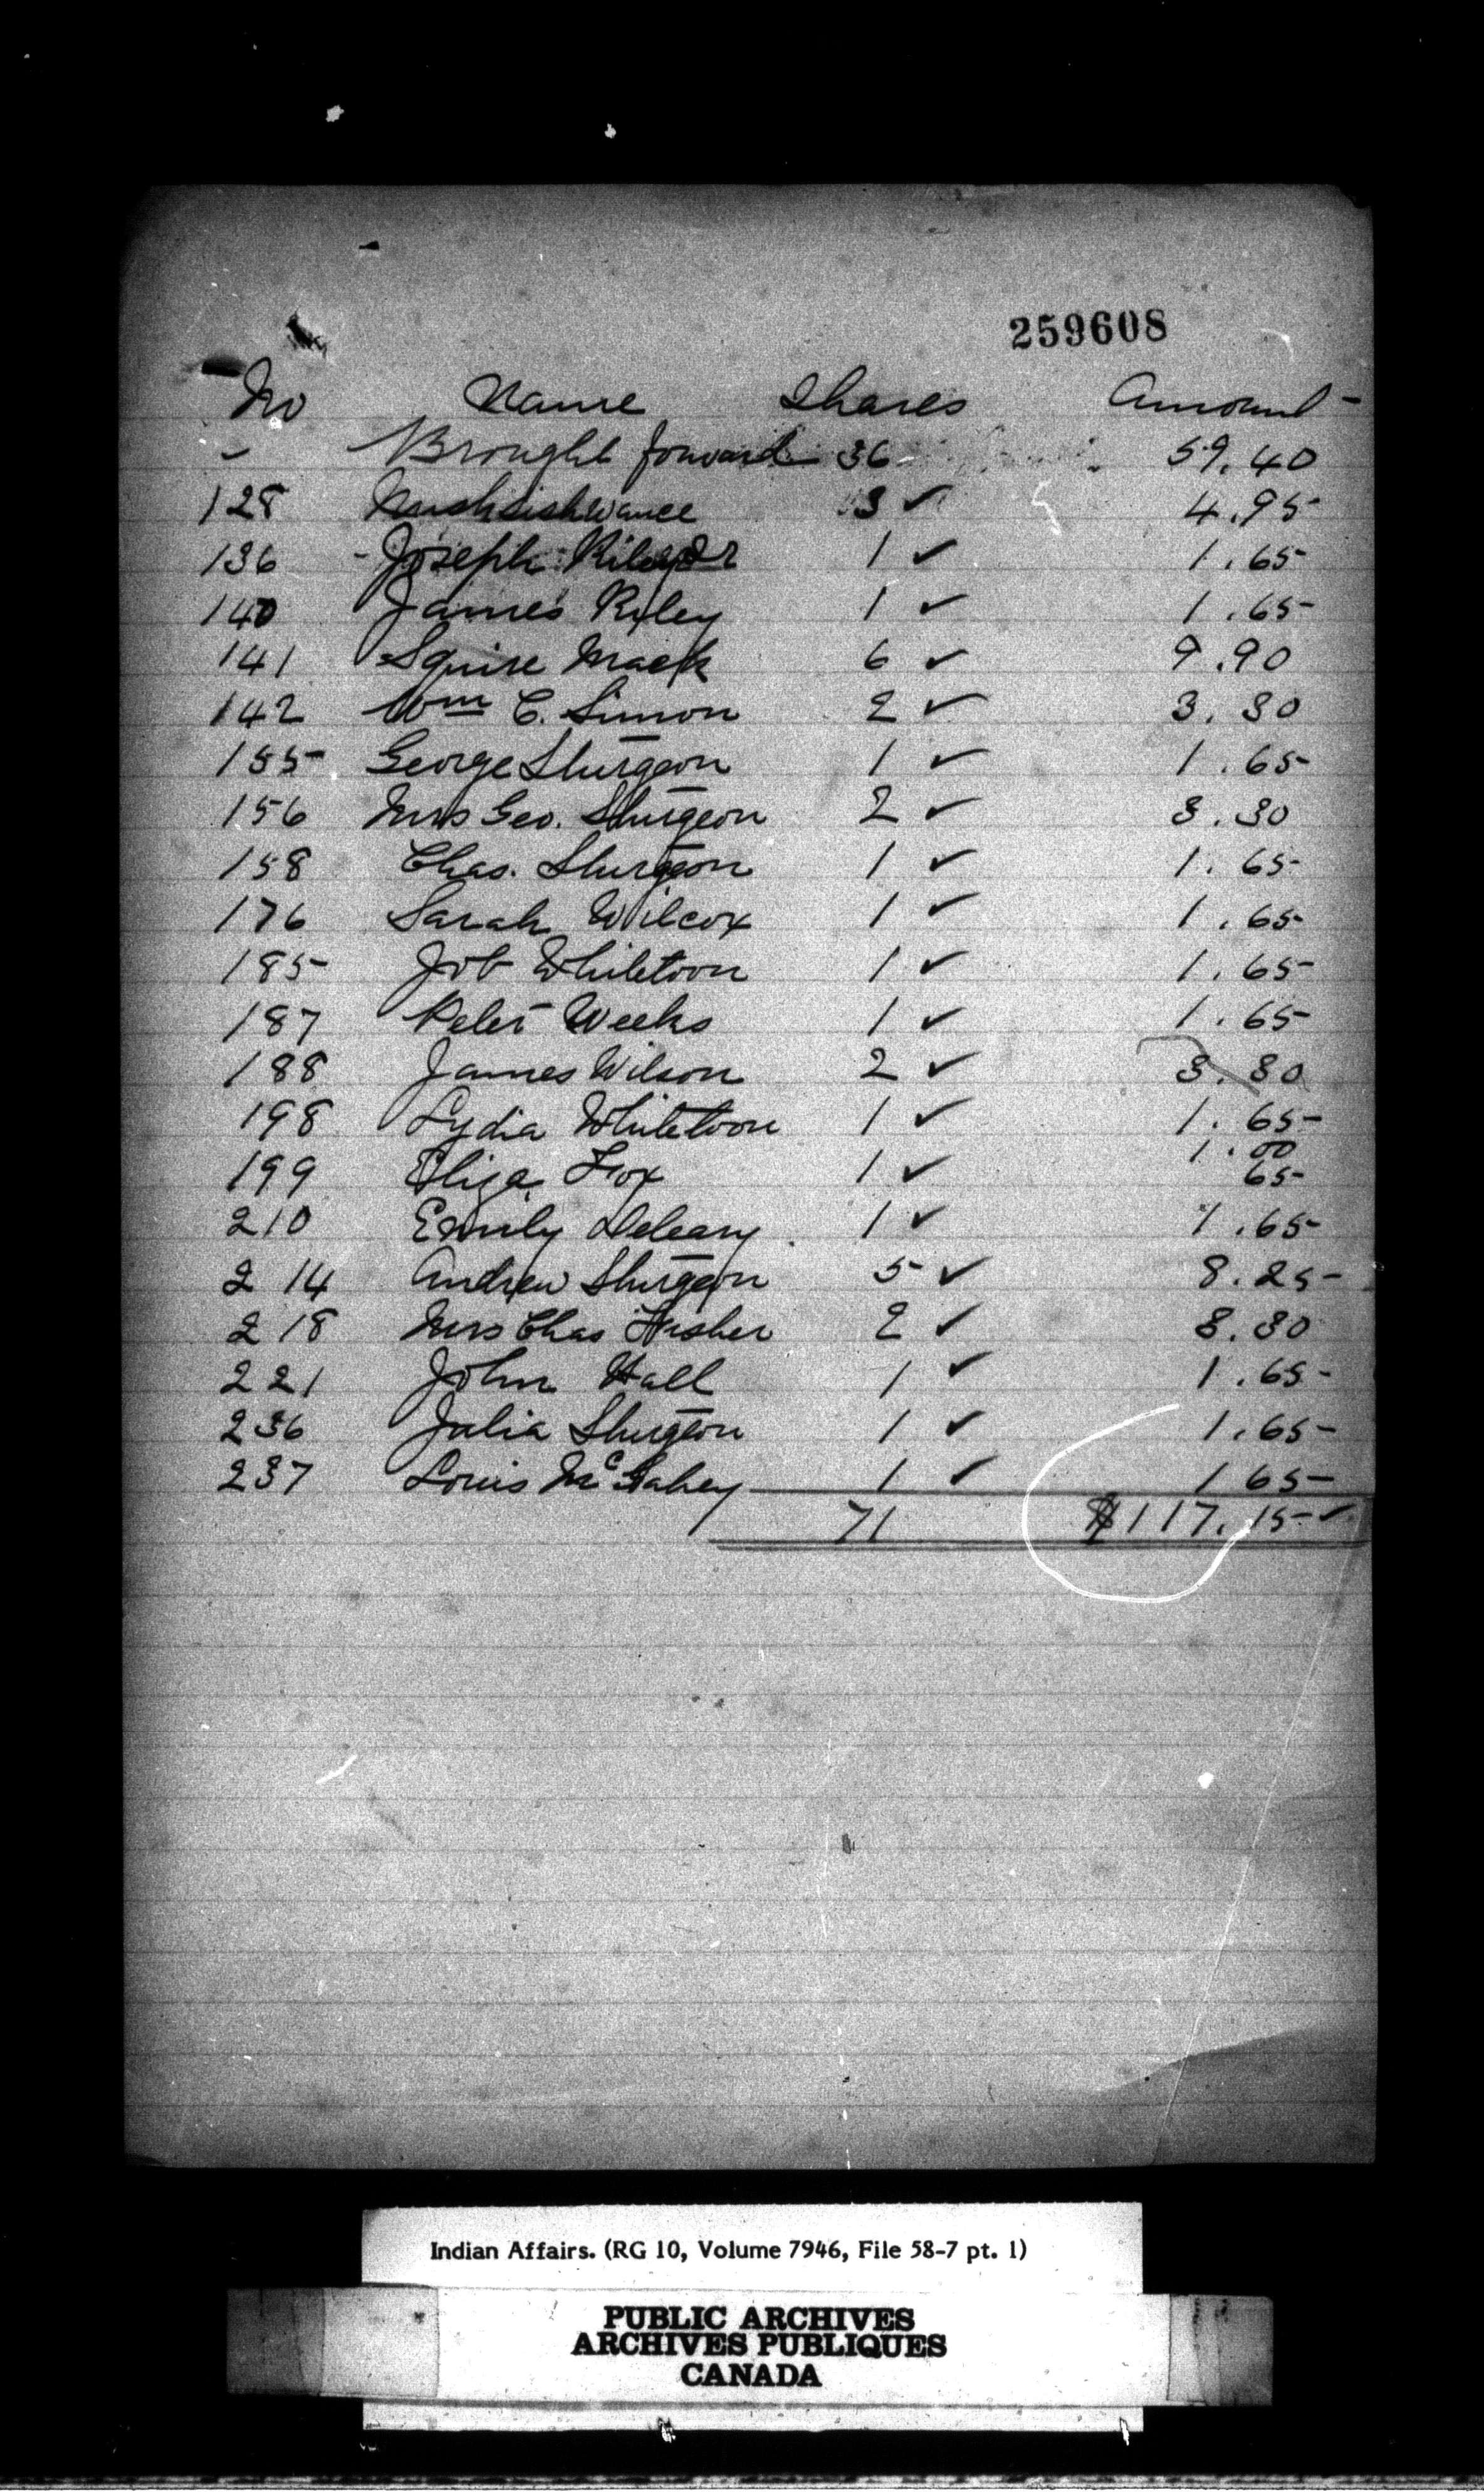 259608
No Name Shares Amount
- Brought forward 36 59.40
128 3 ✓ 4.95
136 - Joseph Riley Jr 1 ✓ 1.65
140 James Riley 1 ✓ 1.65
141 Squire Mack 6 ✓ 9.90
142 Wm C. Simon 2 ✓ 3.30
155 George Sturgeon 1 ✓ 1.65
156 Mrs Geo. Sturgeon 2 ✓ 3.30
158 Chas. Sturgeon 1 ✓ 1.65
176 Sarah Wilcox 1 ✓ 1.65
185 Job Whiteloon 1 ✓ 1.65
187 Peter Weeks 1 ✓ 1.65
188 James Wilson 2 ✓ 3.30
198 Lydia Whiteloon 1 ✓ 1.65
199 Eliza Fox 1 ✓ 1.00
65
210 Emily Deleary 1 ✓ 1.65
214 Andrew Sturgeon 5 ✓ 8.25
218 Mrs Chas Fisher 2 ✓ 3.30
221 John Hall 1 ✓ 1.65
236 Julia Sturgeon 1 ✓ 1.65
237 Louis McGahey 1 ✓ 1 65
71 $117.15 ✓
Indian Affairs. (RG 10, Volume 7946, File 58-7 pt. 1)
PUBLIC ARCHIVES
ARCHIVES PUBLIQUES
CANADA